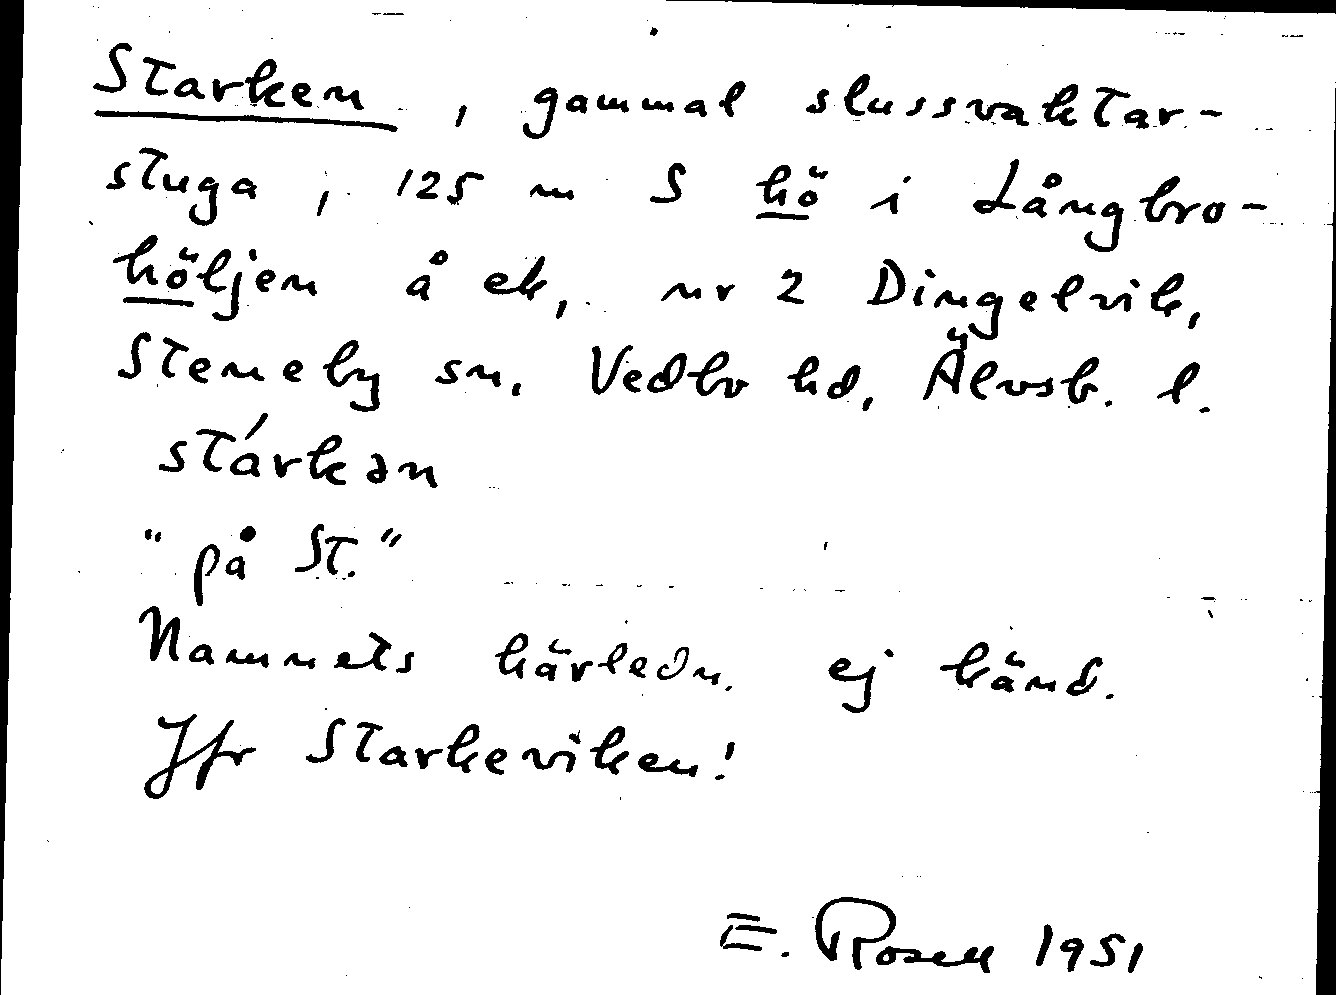 Starken, gammal slussvaktar-
stuga, 125 m S hö i Långbro-
höljen å ek, nr 2 Dingelvik,
Steneby sn, Vedbo hd, Älvsb. l.
stárkən
"på St."
Namnets härledn. ej känd.
Jfr Starkeviken!
E. Rosell 1951